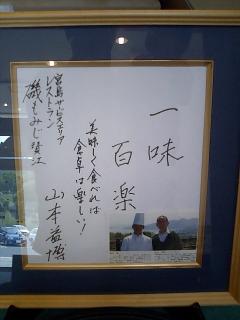 一味
百楽
美味しく食べれば
食卓は楽しい!
宮島サービスエリア
レストラン
磯もみじ賛江
山本益博